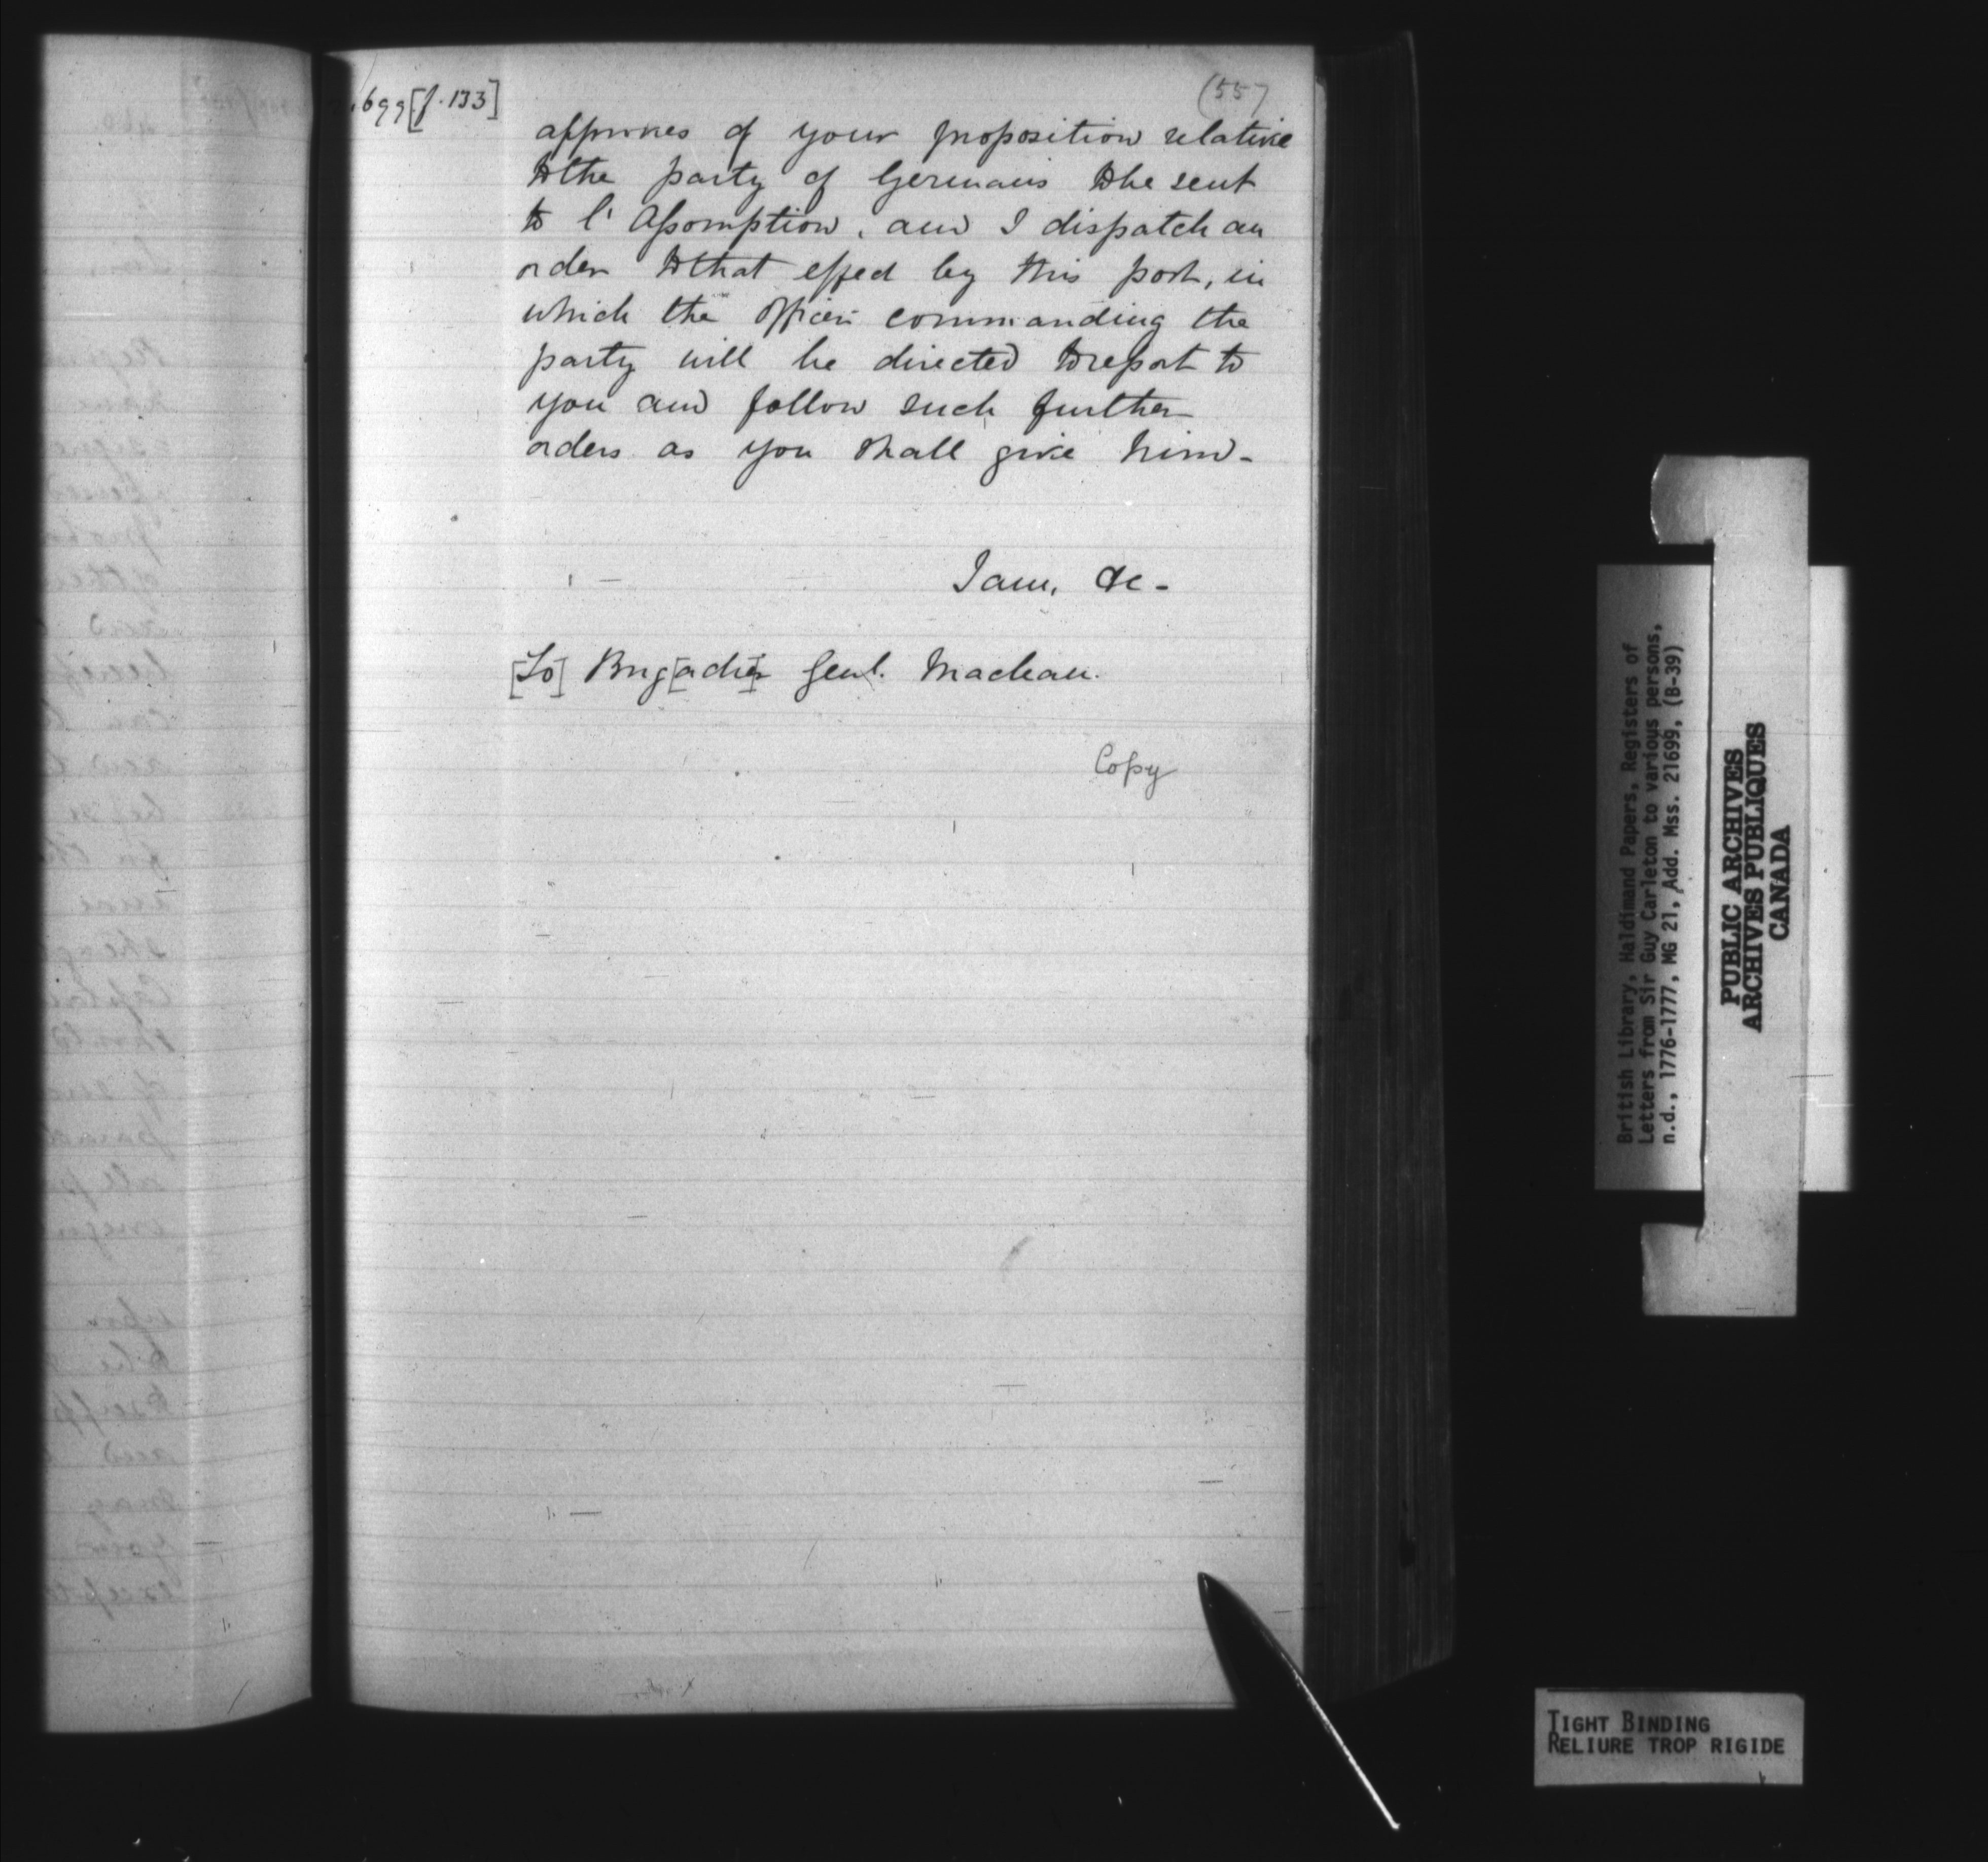 .699 [f. 133]
(55)
approves of your proposition relative
to the party of Germans to be sent
to l'Assomption, and I dispatch an
order to that effect by this post, in
which the Officer commanding the
party will be directed to report to
you and follow such further
orders as you shall give him -
I am, &c -
[To] Brig[adier] Genl. Maclean.
Copy
British Library, Haldimand Papers, Registers of
Letters from Sir Guy Carleton to various persons,
n.d., 1776-1777, MG 21, Add. Mss. 21699, (B-39)
PUBLIC ARCHIVES
ARCHIVES PUBLIQUES
CANADA
TIGHT BINDING
RELIURE TROP RIGIDE